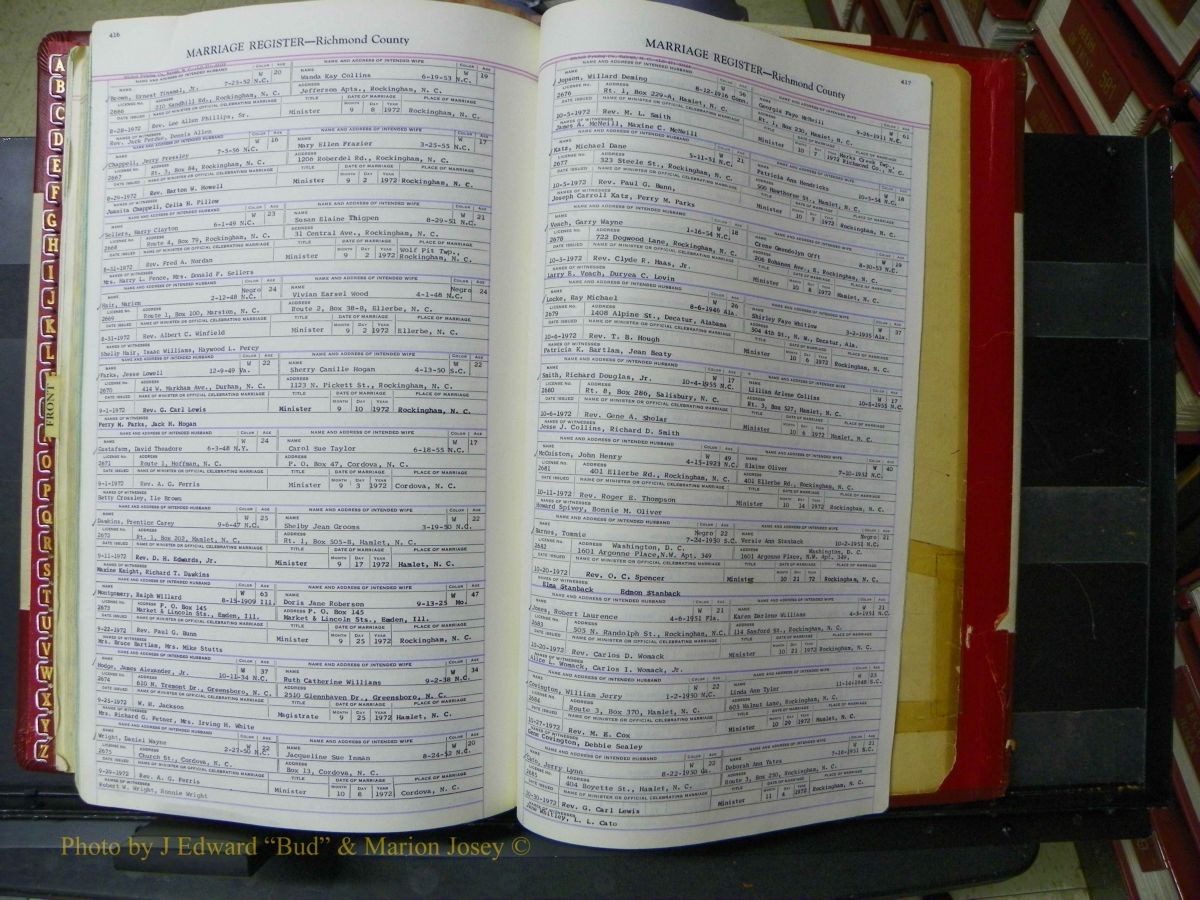 416
MARRIAGE REGISTER—Richmond County
NAME AND ADDRESS OF INTENDED HUSBAND COLOR AGE NAME AND ADDRESS OF INTENDED WIFE COLOR AGE
Brown, Ernest Tinsmal, Jr. 7-25-52 N.C. W 20 Wanda Kay Collins 6-19-53 N.C. W 19
2666 210 Sandhill Rd., Rockingham, N. C. Jefferson Apts., Rockingham, N. C.
8-28-1972 Rev. Lee Allen Phillips, Sr. Minister 9 8 1972 Rockingham, N. C.
Rev. Jack Perdue, Dennis Allen
Chappell, Jerry Pressley 7-5-56 N.C. W 16 Mary Ellen Frazier 3-25-55 N.C. W 17
2667 Rt. 3, Box 84, Rockingham, N. C. 1206 Roberdel Rd., Rockingham, N. C.
8-29-1972 Rev. Barton W. Howell Minister 9 2 1972 Rockingham, N. C.
Juanita Chappell, Celia H. Pillow
Sellers, Harry Clayton 6-1-49 N.C. W 23 Susan Elaine Thigpen 8-29-51 N.C. W 21
2668 Route 4, Box 79, Rockingham, N. C. 31 Central Ave., Rockingham, N. C.
8-31-1972 Rev. Fred A. Nordan Minister 9 2 1972 Wolf Pit Twp., Rockingham, N. C.
Mrs. Harry L. Pence, Mrs. Donald F. Sellers
Hair, Marion 2-12-48 N.C. Negro 24 Vivian Earsel Wood 4-1-48 N.C. Negro 24
2669 Route 1, Box 100, Marston, N. C. Route 2, Box 38-B, Ellerbe, N. C.
8-31-1972 Rev. Albert C. Winfield Minister 9 2 1972 Ellerbe, N. C.
Shelly Hair, Isaac Williams, Haywood L. Percy
Parks, Jesse Lowell 12-9-49 Va. W 22 Sherry Camille Hogan 4-13-50 S.C. W 22
2670 414 W. Markham Ave., Durham, N. C. 1123 N. Pickett St., Rockingham, N. C.
9-1-1972 Rev. G. Carl Lewis Minister 9 10 1972 Rockingham, N. C.
Perry M. Parks, Jack H. Hogan
Gustafson, David Theadore 6-3-48 N.Y. W 24 Carol Sue Taylor 6-18-55 N.C. W 17
2671 Route 1, Hoffman, N. C. P. O. Box 47, Cordova, N. C.
9-1-1972 Rev. A. G. Ferris Minister 9 3 1972 Cordova, N. C.
Betty Crossley, Ile Brown
Dawkins, Prentice Carey 9-6-47 N.C. W 25 Shelby Jean Grooms 3-19-50 N.C. W 22
2672 Rt. 1, Box 202, Hamlet, N. C. Rt. 1, Box 505-B, Hamlet, N. C.
9-11-1972 Rev. D. H. Edwards, Jr. Minister 9 17 1972 Hamlet, N. C.
Maxine Knight, Richard T. Dawkins
Montgomery, Ralph Willard 8-15-1909 Ill. W 63 Doris Jane Roberson 9-13-25 Mo. W 47
2673 P. O. Box 145 Market & Lincoln Sts., Emden, Ill. P. O. Box 145 Market & Lincoln Sts., Emden, Ill.
9-22-1972 Rev. Paul G. Bunn Minister 9 25 1972 Rockingham, N. C.
Mrs. Bruce Bartlam, Mrs. Mike Stutts
Hodge, James Alexander, Jr. 10-11-34 N.C. W 37 Ruth Catherine Williams 9-2-38 N.C. W 34
2674 610 N. Tremont Dr., Greensboro, N. C. 2510 Glennhaven Dr., Greensboro, N. C.
9-25-1972 W. H. Jackson Magistrate 9 25 1972 Hamlet, N. C.
Mrs. Richard G. Fetner, Mrs. Irving H. White
Wright, Daniel Wayne 2-27-50 N.C. W 22 Jacqueline Sue Inman 8-24-52 N.C. W 20
2675 Church St., Cordova, N. C. Box 13, Cordova, N. C.
9-29-1972 Rev. A. G. Ferris Minister 10 8 1972 Cordova, N. C.
Robert W. Wright, Ronnie Wright
MARRIAGE REGISTER—Richmond County 417
NAME AND ADDRESS OF INTENDED HUSBAND COLOR AGE NAME AND ADDRESS OF INTENDED WIFE COLOR AGE
Jopson, Willard Deming 8-12-1916 Conn. W 56 Georgia Faye McNeill 9-26-1911 N.C. W 61
2676 Rt. 1, Box 229-A, Hamlet, N. C. Rt. 1, Box 230, Hamlet, N. C.
10-5-1972 Rev. M. L. Smith Minister 10 7 1972 Marks Creek Twp., Richmond Co., N. C.
James A. McNeill, Maxine C. McNeill
Katz, Michael Dane 5-11-51 N.C. W 21 Patricia Ann Hendricks 10-5-54 N.C. W 18
2677 323 Steele St., Rockingham, N. C. 500 Hawthorne St., Hamlet, N. C.
10-5-1972 Rev. Paul G. Bunn, Minister 10 7 1972 Rockingham, N. C.
Joseph Carroll Katz, Perry M. Parks
Veach, Garry Wayne 1-16-54 N.C. W 18 Crene Gwendolyn Offt 8-30-53 N.C. W 19
2678 722 Dogwood Lane, Rockingham, N. C. 206 Rohanna Ave., E. Rockingham, N. C.
10-5-1972 Rev. Clyde R. Haas, Jr. Minister 10 8 1972 Hamlet, N. C.
Larry E. Veach, Duryea C. Lovin
Locke, Ray Michael 8-6-1946 Ala. W 26 Shirley Faye Whitlow 3-2-1935 Ala. W 37
2679 1408 Alpine St., Decatur, Alabama 504 4th St., N. W., Decatur, Ala.
10-6-1972 Rev. T. B. Hough Minister 10 6 1972 Rockingham, N. C.
Patricia K. Bartlam, Jean Beaty
Smith, Richard Douglas, Jr. 10-4-1955 N.C. W 17 Lillian Arlene Collins 10-5-1955 N.C. W 17
2680 Rt. 8, Box 286, Salisbury, N. C. Rt. 3, Box 527, Hamlet, N. C.
10-6-1972 Rev. Gene A. Sholar Minister 10 6 1972 Hamlet, N. C.
Jesse J. Collins, Richard D. Smith
McCuiston, John Henry 4-15-1923 N.C. W 49 Elaine Oliver 7-10-1932 N.C. W 40
2681 401 Ellerbe Rd., Rockingham, N. C. 401 Ellerbe Rd., Rockingham, N. C.
10-11-1972 Rev. Roger E. Thompson Minister 10 14 1972 Rockingham, N. C.
Howard Spivey, Bonnie M. Oliver
Barnes, Tommie 7-24-1950 S.C. Negro 22 Versie Ann Stanback 10-2-1951 N.C. Negro 21
2682 Washington, D. C. 1601 Argonne Place,N.W. Apt. 349 Washington, D. C. 1601 Argonne Place, N.W. Apt. 349,
10-20-1972 Rev. O. C. Spencer Minister 10 21 72 Rockingham, N. C.
Elma Stanback Edmon Stanback
Jones, Robert Laurence 4-6-1951 Fla. W 21 Karen Darlene Williams 4-3-1951 N.C. W 21
2683 505 N. Randolph St., Rockingham, N.C. 114 Sanford St., Rockingham, N. C.
10-20-1972 Rev. Carlos D. Womack Minister 10 21 1972 Rockingham, N. C.
Alice L. Womack, Carlos I. Womack, Jr.
Covington, William Jerry 1-2-1950 N.C. W 22 Linda Ann Tyler 11-14-1948 S.C. W 23
2684 Route 3, Box 370, Hamlet, N. C. 605 Walnut Lane, Rockingham, N. C.
10-27-1972 Rev. M. E. Cox Minister 10 29 1972 Hamlet, N. C.
Gene Covington, Debbie Sealey
Cato, Jerry Lynn 8-22-1950 Ga. W 22 Deborah Ann Yates 7-18-1951 N.C. W 21
2685 404 Boyette St., Hamlet, N. C. Route 3, Box 250, Rockingham, N. C.
10-30-1972 Rev. G. Carl Lewis Minister 11 4 1972 Rockingham, N. C.
Whitley, L. L. Cato
A
B
C
D
E
F
G
H
I
J
K
L
FRONT
O
P
Q
R
S
T
U
V
W
X
Y
Z
Photo by J Edward “Bud” & Marion Josey ©